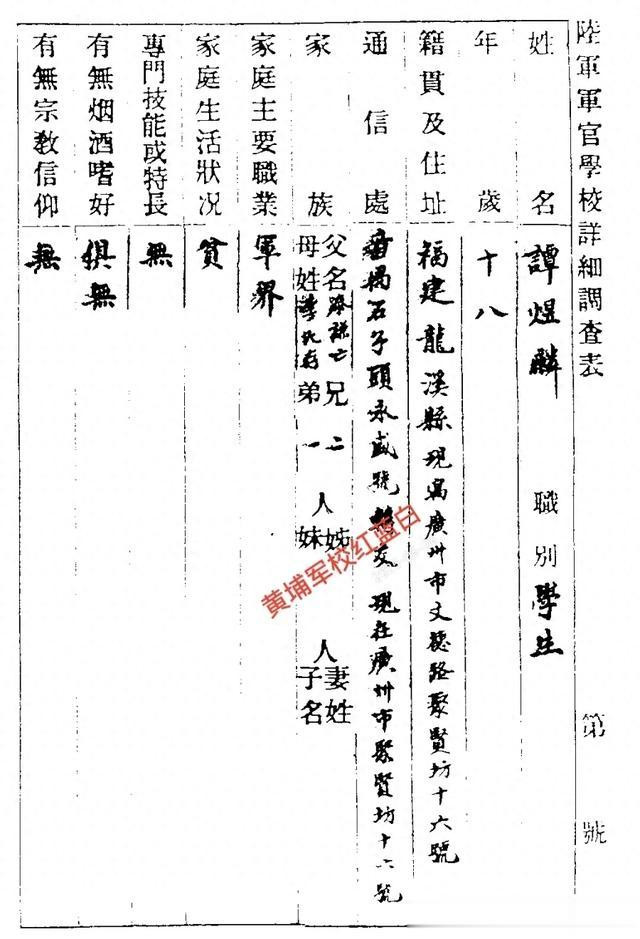 陸軍軍官學校詳細調查表 第 號
姓名 譚煜麟 職別 學生
年歲 十八
籍貫及住址 福建龍溪縣現寓廣州市文德路聚賢坊十六號
通信處 番禺石子頭永盛號轉交 現在廣州市聚賢坊十六號
家族 父名 亡 兄 二 人 姊 人 妻姓
母姓 李氏存 弟 一 妹 子名
家庭主要職業 軍界
家庭生活狀況 貧
專門技能或特長 無
有無烟酒嗜好 俱無
有無宗教信仰 無
黄埔军校红蓝白